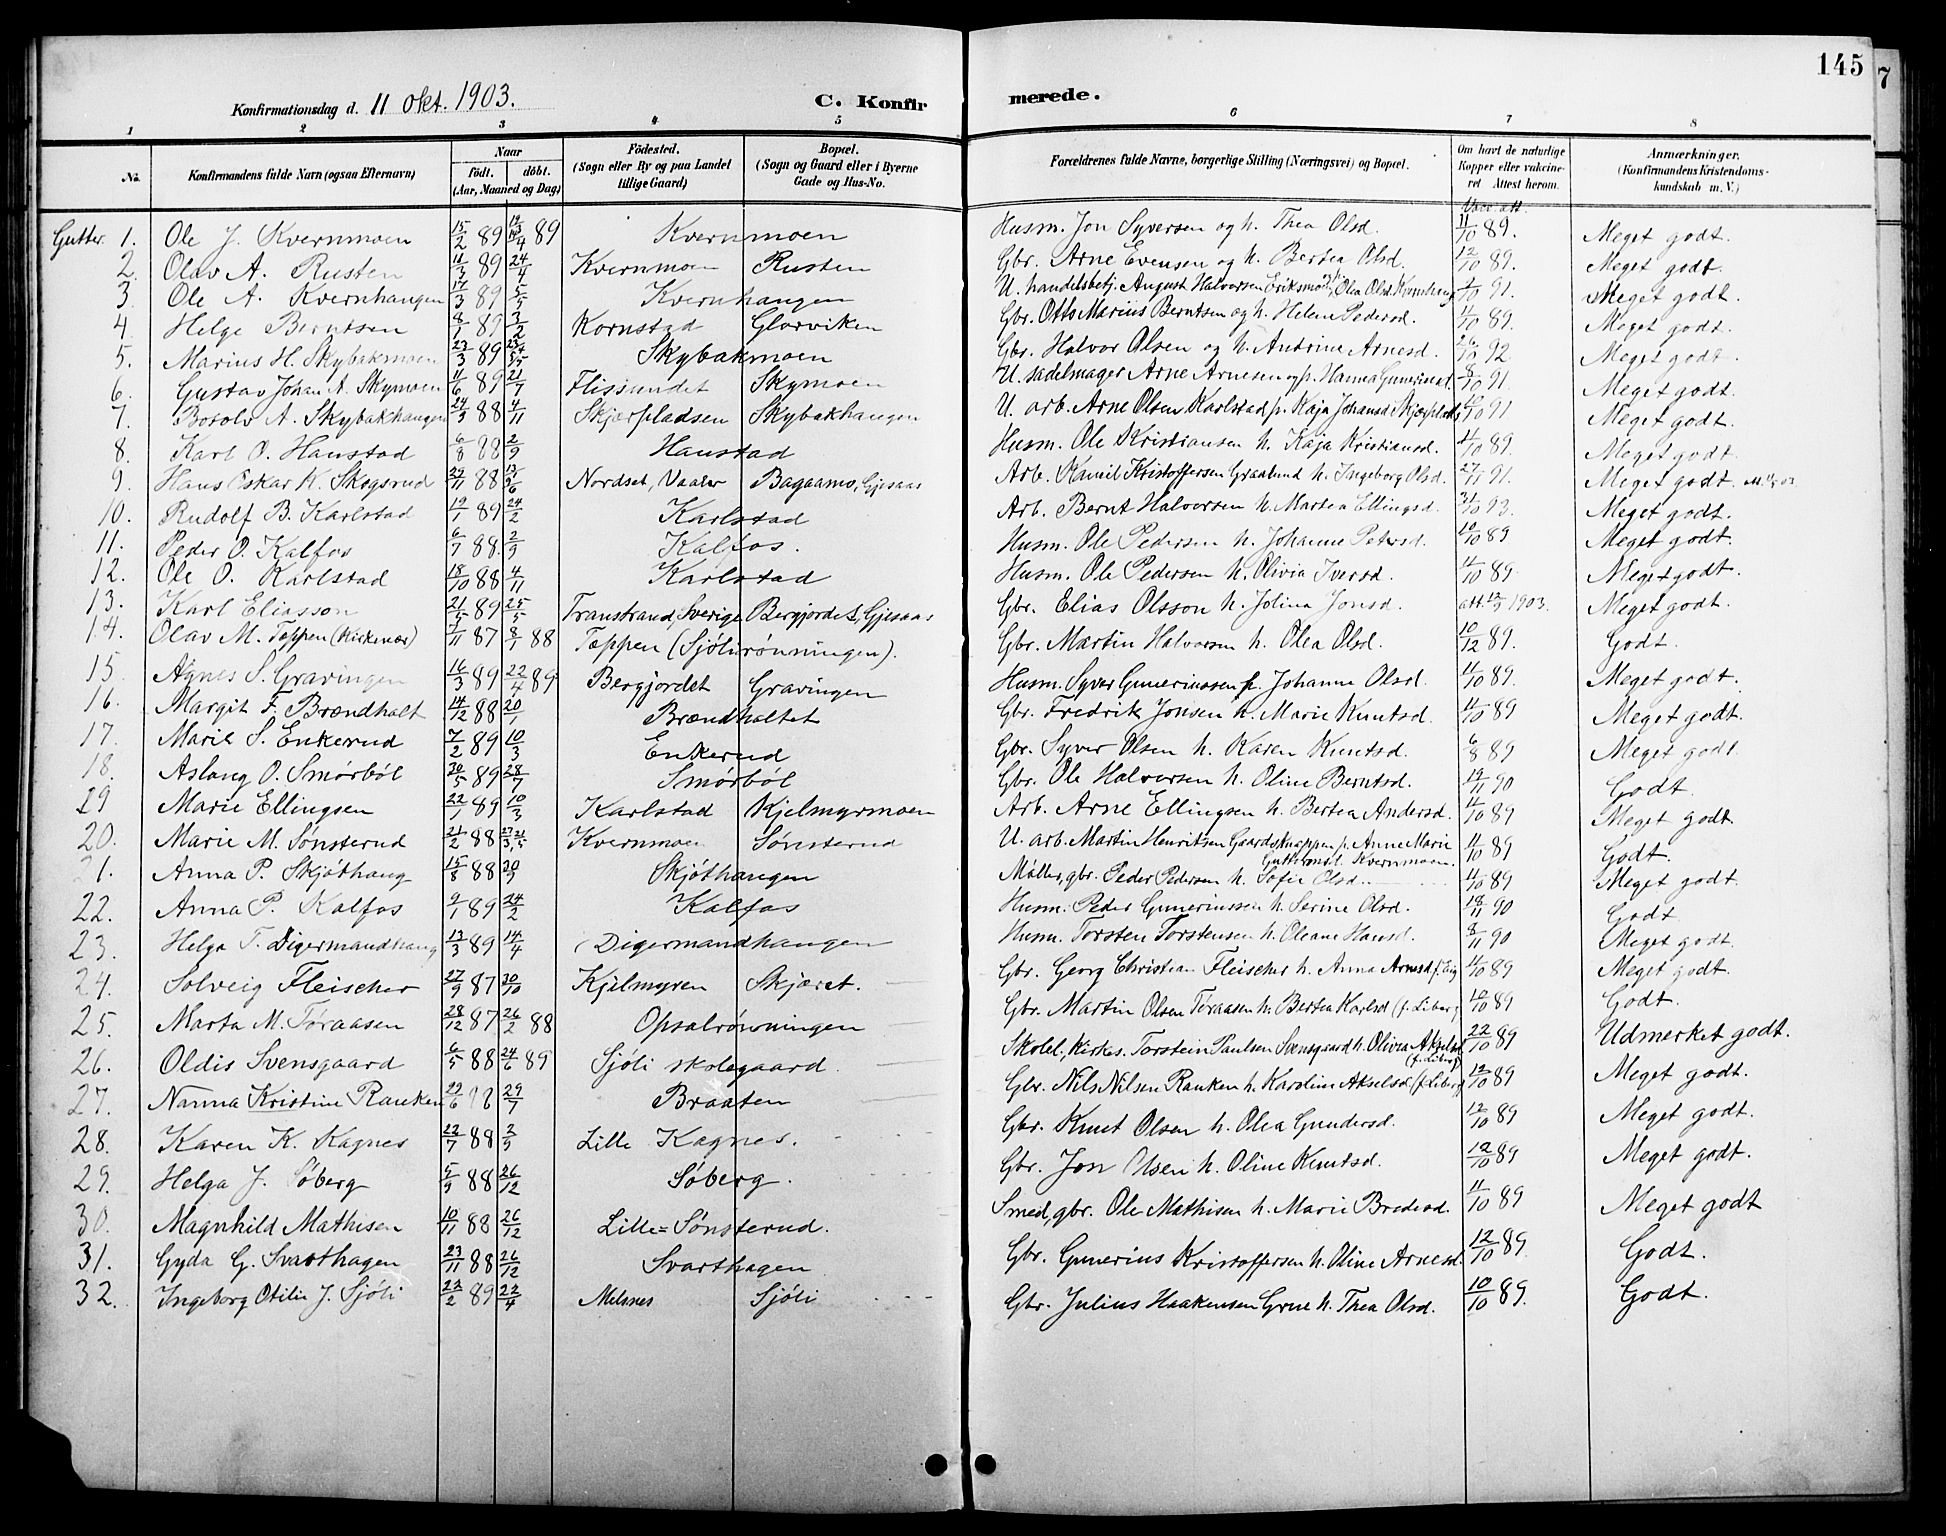 145
7
Konfirmationsdag d. 11 Okt. 1903. C. Konfirmerede.
1 2 3 4 5 6 7 8
No. Konfirmandens fulde Navn (ogsaa Efternavn) Naar födt. döbt. (Aar, Maaned og Dag) Födested. (Sogn eller By og paa Landet tillige Gaard) Bopæl. (Sogn og Gaard eller i Byerne Gade og Hus-No. Forældrenes fulde Navne, borgerlige Stilling (Næringsvei) og Bopæl. Om havt de naturlige Kopper eller vakcineret Attest herom. Anmærkninger. (Konfirmandens Kristendomskundskab m. V.)
Vacc. att.
Gutter. 1. Ole J. Kvernmoen 15/2 89 14/4 89 Kvernmoen Husm. Jon Syversen og h. Thea Olsd. 11/10 89. Meget godt.
2. Olav A. Rusten 11/3 89 24/4 Kvernmoen Rusten Gbr. Arne Evensen og h. Bertea Olsd. 12/10 89. Meget godt.
3. Ole A. Kvernhangen 17/3 89 5/5 Kvernhangen U. handelsbetj. August Halvorsen Eriksmo og p. Olea Olsd. Kvernhang 91. Meget godt.
4. Helge Berntsen 8/1 89 3/2 Kornstad Glorviken Gbr. Otto Marius Berntsen og h. Helene Pedersd. 11/10 89. Meget godt.
5. Marius H. Skybakmoen 23/3 89 Skybakmoen Gbr. Halvor Olsen og h. Andrine Arnesd. 26/10 92 Meget godt.
6. Gustav Johan A. Skymoen 11/6 89 21/7 Flissundet Skymoen U. sadelmager Arne Arnesen og p. Hanna Gunerinsd. 8/10 91. Meget godt.
7. Botolv A. Skybakhangen 24/9 88 4/11 Skjærpladsen Skybakhangen U. arb. Arne Olsen Karlstad p. Kaja Johansd. Skjærplads 10/10 91 Meget godt.
8. Karl O. Hanstad 6/8 88 2/9 Hanstad Husm. Ole Kristiansen h. Kaja Kristiansd. 11/10 89. Meget godt.
9. Hans Oskar K. Skogsrud 29/11 88 Nordset, Vaaler Bagaamo, Gjesaas Arb. Kamil Kristoffersen Graalund h. Ingeborg Olsd. 27/11 91. Meget godt.
10. Rudolf B. Karlstad 19/1 89 24/2 Karlstad Arb. Bernt Halvorsen h. Martea Ellingsd. 31/10 93. Meget godt.
11. Peder O. Kalfos 6/7 88. 2/9 Kalfos. Husm. Ole Pedersen h. Johanne Petersd. 10/10 89 Meget godt.
12. Ole O. Karlstad 18/10 88 4/11 Karlstad Husm. Ole Pedersen h. Olivia Iversd. 11/10 89. Meget godt.
13. Karl Eliasson 21/5 89 25/5 Transtrand, Sverige Bergjordet, Gjesaas Gbr. Elias Olsson h. Jolina Jonsd. att. 1903. Meget godt.
14. Olav M. Toppen (Kirkenær) 87 8/1 88 Toppen (Sjölirönningen). Gbr. Martin Halvorsen h. Olea Olsd. 10/12 89. Godt.
15 Agnes S. Gravingen 16/3 89 22/4 89 Bergjordet Gravingen Husm. Syver Gunerinssen h. Johanne Olsd. 11/10 89. Meget godt.
16. Margit F. Brændhalt 14/12 88 20/1 Brændhaltet Gbr. Fredrik Jonsen h. Marie Knutsd. 11/10 89 Meget godt.
17. Marie S. Enkerud 7/2 89 10/3 Enkerud Gbr. Syver Olsen h. Karen Knutsd. 6/8 89 Meget godt.
18. Aslaug O. Smörböl 30/5 89 28/7 Smörböl Gbr. Ole Halvorsen h. Oline Berntsd. 19/11 90 Godt.
19 Marie Ellingsen 22/1 89 10/3 Karlstad Kjelmyrmoen Arb. Arne Ellingsen h. Bertea Andersd. 11/10 89 Meget godt.
20. Marie M. Sönsterud 21/2 88 Kvernmoen Sönsterud U. arb. Martin Henriksen Gaardsknappen p. Anne Marie Guttormsd. Kvernmoen. 11/10 89 Godt.
21. Anna P. Skjöthaug 15/8 88 30/9 Skjöthangen Möller, gbr. Peder Pedersen h. Sofie Olsd. 11/10 89 Meget godt.
22. Anna P. Kalfos 9/1 89 24/2 Kalfos Husm. Peder Gunerinssen h. Serine Olsd. 18/11 90 Godt
23. Helga T. Digermandhang 13/3 89 14/4 Digermandhangen Husm. Torsten Torstensen h. Oleane Hansd. 8/11 90 Meget godt.
24. Solveig Fleischer 27/9 87 30/10 Kjelmyren Skjæret. Gbr. Georg Christian Fleischer h. Anna Arnesd. 11/10 89 Meget godt.
25. Marta M. Töraasen 28/12 87 26/2 88 Opsalrönningen Gbr. Martin Olsen Töraasen h. Bertea Karlsd. (f. Liberg) 12/10 89 Godt.
26. Oldis Svensgaard 6/5 88 24/6 89 Sjöli skolegaard Skolel., Kirkes. Torstein Paulsen Svensgaard h. Olivia Akselsd. (f. Liberg) 22/10 89 Udmerket godt.
27. Nanna Kristine Ranken 29/6 88 29/7 Braaten Gbr. Nils Nilsen Ranken h. Karoline Akselsd. (f. Liberg) 12/10 89 Meget godt.
28. Karen K. Kagnes 22/7 88 2/9 Lille Kagnes. Gbr. Knut Olsen h. Olea Gundersd. 12/10 89 Meget godt.
29. Helga J. Söberg 5/9 88 26/12 Söberg. Gbr. Jon Olsen h. Oline Knutsd. 12/10 89 Meget godt.
30. Magnhild Mathisen 10/11 88 26/12 Lille-Sönsterud. Smed, gbr. Ole Mathisen h. Marie Bredesd. 11/10 89 Meget godt
31. Gyda G. Svarthagen 23/11 88 26/12 Svarthagen Gbr. Gunerius Kristoffersen h. Oline Arnesd. 12/10 89. Godt.
32. Ingeborg Otilie J. Sjöli 22/2 89 22/4 Melsnes Sjöli Gbr. Julius Haakensen Grue h. Thea Olsd. 10/10 89. Godt.